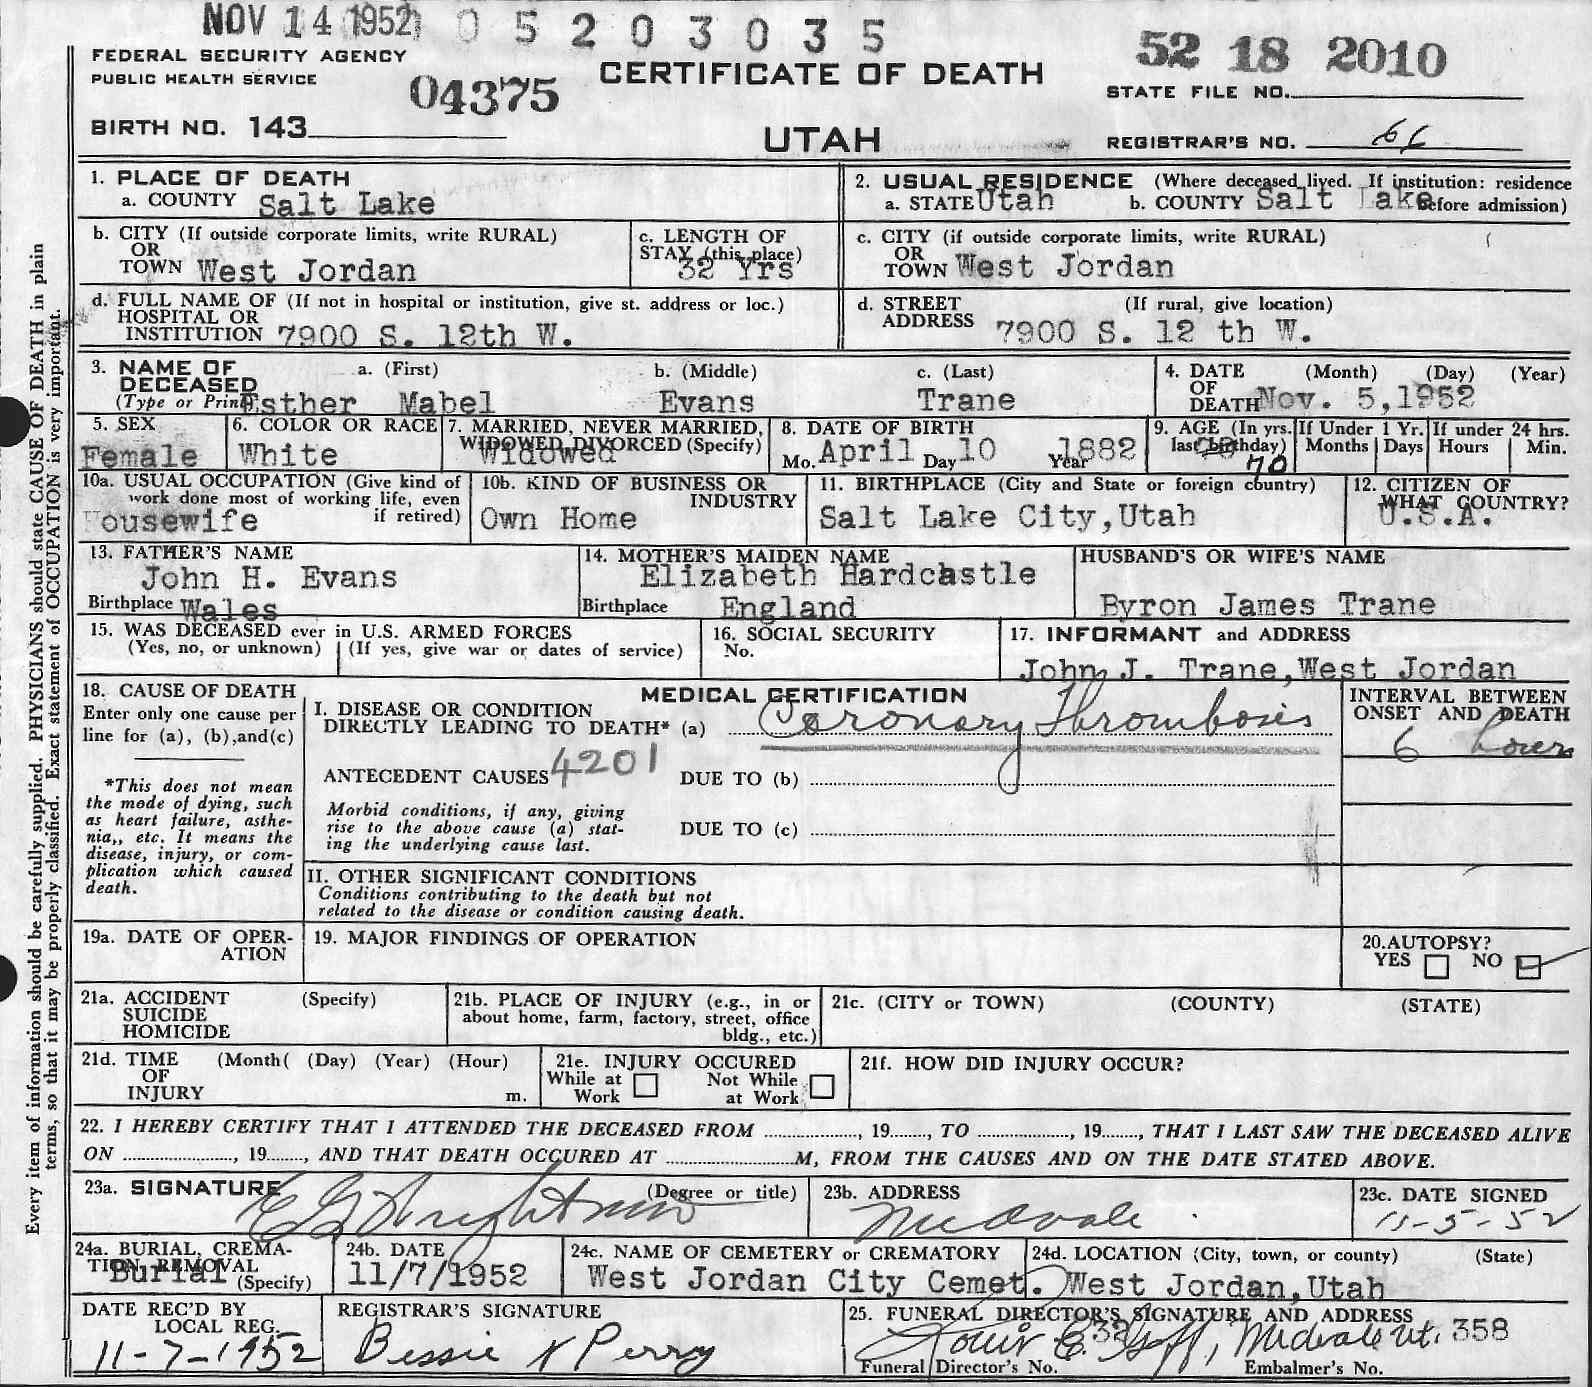 NOV 14 1952 05203035
52 18 2010
FEDERAL SECURITY AGENCY
PUBLIC HEALTH SERVICE
04375
CERTIFICATE OF DEATH
STATE FILE NO.
BIRTH NO. 143
UTAH
REGISTRAR'S NO.
Every item of information should be carefully supplied. PHYSICIANS should state CAUSE OF DEATH in plain
terms, so that it may be properly classified. Exact statement of OCCUPATION is very important.
1. PLACE OF DEATH
a. COUNTY Salt Lake
2. USUAL RESIDENCE (Where deceased lived. If institution: residence
a. STATE Utah b. COUNTY Salt Lake before admission)
b. CITY (If outside corporate limits, write RURAL)
OR
TOWN West Jordan
c. LENGTH OF
STAY (this place)
32 Yrs
c. CITY (if outside corporate limits, write RURAL)
OR
TOWN West Jordan
d. FULL NAME OF (If not in hospital or institution, give st. address or loc.)
HOSPITAL OR
INSTITUTION 7900 S. 12th W.
d. STREET (If rural, give location)
ADDRESS 7900 S. 12 th W.
3. NAME OF a. (First) b. (Middle) c. (Last)
DECEASED
(Type or Print) Esther Mabel Evans Trane
4. DATE (Month) (Day) (Year)
OF
DEATH Nov. 5,1952
5. SEX
Female
6. COLOR OR RACE
White
7. MARRIED, NEVER MARRIED,
WIDOWED, DIVORCED (Specify)
Widowed
8. DATE OF BIRTH
Mo. April Day 10 Year 1882
9. AGE (In yrs.
last birthday)
70
If Under 1 Yr.
Months Days
If under 24 hrs.
Hours Min.
10a. USUAL OCCUPATION (Give kind of
work done most of working life, even
if retired)
Housewife
10b. KIND OF BUSINESS OR
INDUSTRY
Own Home
11. BIRTHPLACE (City and State or foreign country)
Salt Lake City,Utah
12. CITIZEN OF
WHAT COUNTRY?
U.S.A.
13. FATHER'S NAME
John H. Evans
Birthplace Wales
14. MOTHER'S MAIDEN NAME
Elizabeth Hardcastle
Birthplace England
HUSBAND'S OR WIFE'S NAME
Byron James Trane
15. WAS DECEASED ever in U.S. ARMED FORCES
(Yes, no, or unknown) (If yes, give war or dates of service)
16. SOCIAL SECURITY
No.
17. INFORMANT and ADDRESS
John J. Trane,West Jordan
18. CAUSE OF DEATH
Enter only one cause per
line for (a), (b),and(c)
*This does not mean
the mode of dying, such
as heart failure, asthe-
nia,, etc. It means the
disease, injury, or com-
plication which caused
death.
MEDICAL CERTIFICATION
I. DISEASE OR CONDITION
DIRECTLY LEADING TO DEATH* (a) Coronary Thrombosis
ANTECEDENT CAUSES 4201 DUE TO (b)
Morbid conditions, if any, giving
rise to the above cause (a) stat-
ing the underlying cause last.
DUE TO (c)
INTERVAL BETWEEN
ONSET AND DEATH
6 hours
II. OTHER SIGNIFICANT CONDITIONS
Conditions contributing to the death but not
related to the disease or condition causing death.
19a. DATE OF OPER-
ATION
19. MAJOR FINDINGS OF OPERATION
20.AUTOPSY?
YES NO
21a. ACCIDENT (Specify)
SUICIDE
HOMICIDE
21b. PLACE OF INJURY (e.g., in or
about home, farm, factory, street, office
bldg., etc.)
21c. (CITY or TOWN) (COUNTY) (STATE)
21d. TIME (Month( (Day) (Year) (Hour)
OF
INJURY m.
21e. INJURY OCCURED
While at Not While
Work at Work
21f. HOW DID INJURY OCCUR?
22. I HEREBY CERTIFY THAT I ATTENDED THE DECEASED FROM , 19 , TO , 19 , THAT I LAST SAW THE DECEASED ALIVE
ON , 19 , AND THAT DEATH OCCURED AT M, FROM THE CAUSES AND ON THE DATE STATED ABOVE.
23a. SIGNATURE (Degree or title)
23b. ADDRESS
Midvale
23c. DATE SIGNED
11-5-52
24a. BURIAL, CREMA-
TION, REMOVAL
Burial (Specify)
24b. DATE
11/7/1952
24c. NAME OF CEMETERY or CREMATORY
West Jordan City Cemet.
24d. LOCATION (City, town, or county) (State)
West Jordan,Utah
DATE REC'D BY
LOCAL REG.
11-7-1952
REGISTRAR'S SIGNATURE
Bessie N Perry
25. FUNERAL DIRECTOR'S SIGNATURE AND ADDRESS
Louis E. Goff, Midvale Ut. 358
Funeral Director's No. Embalmer's No.